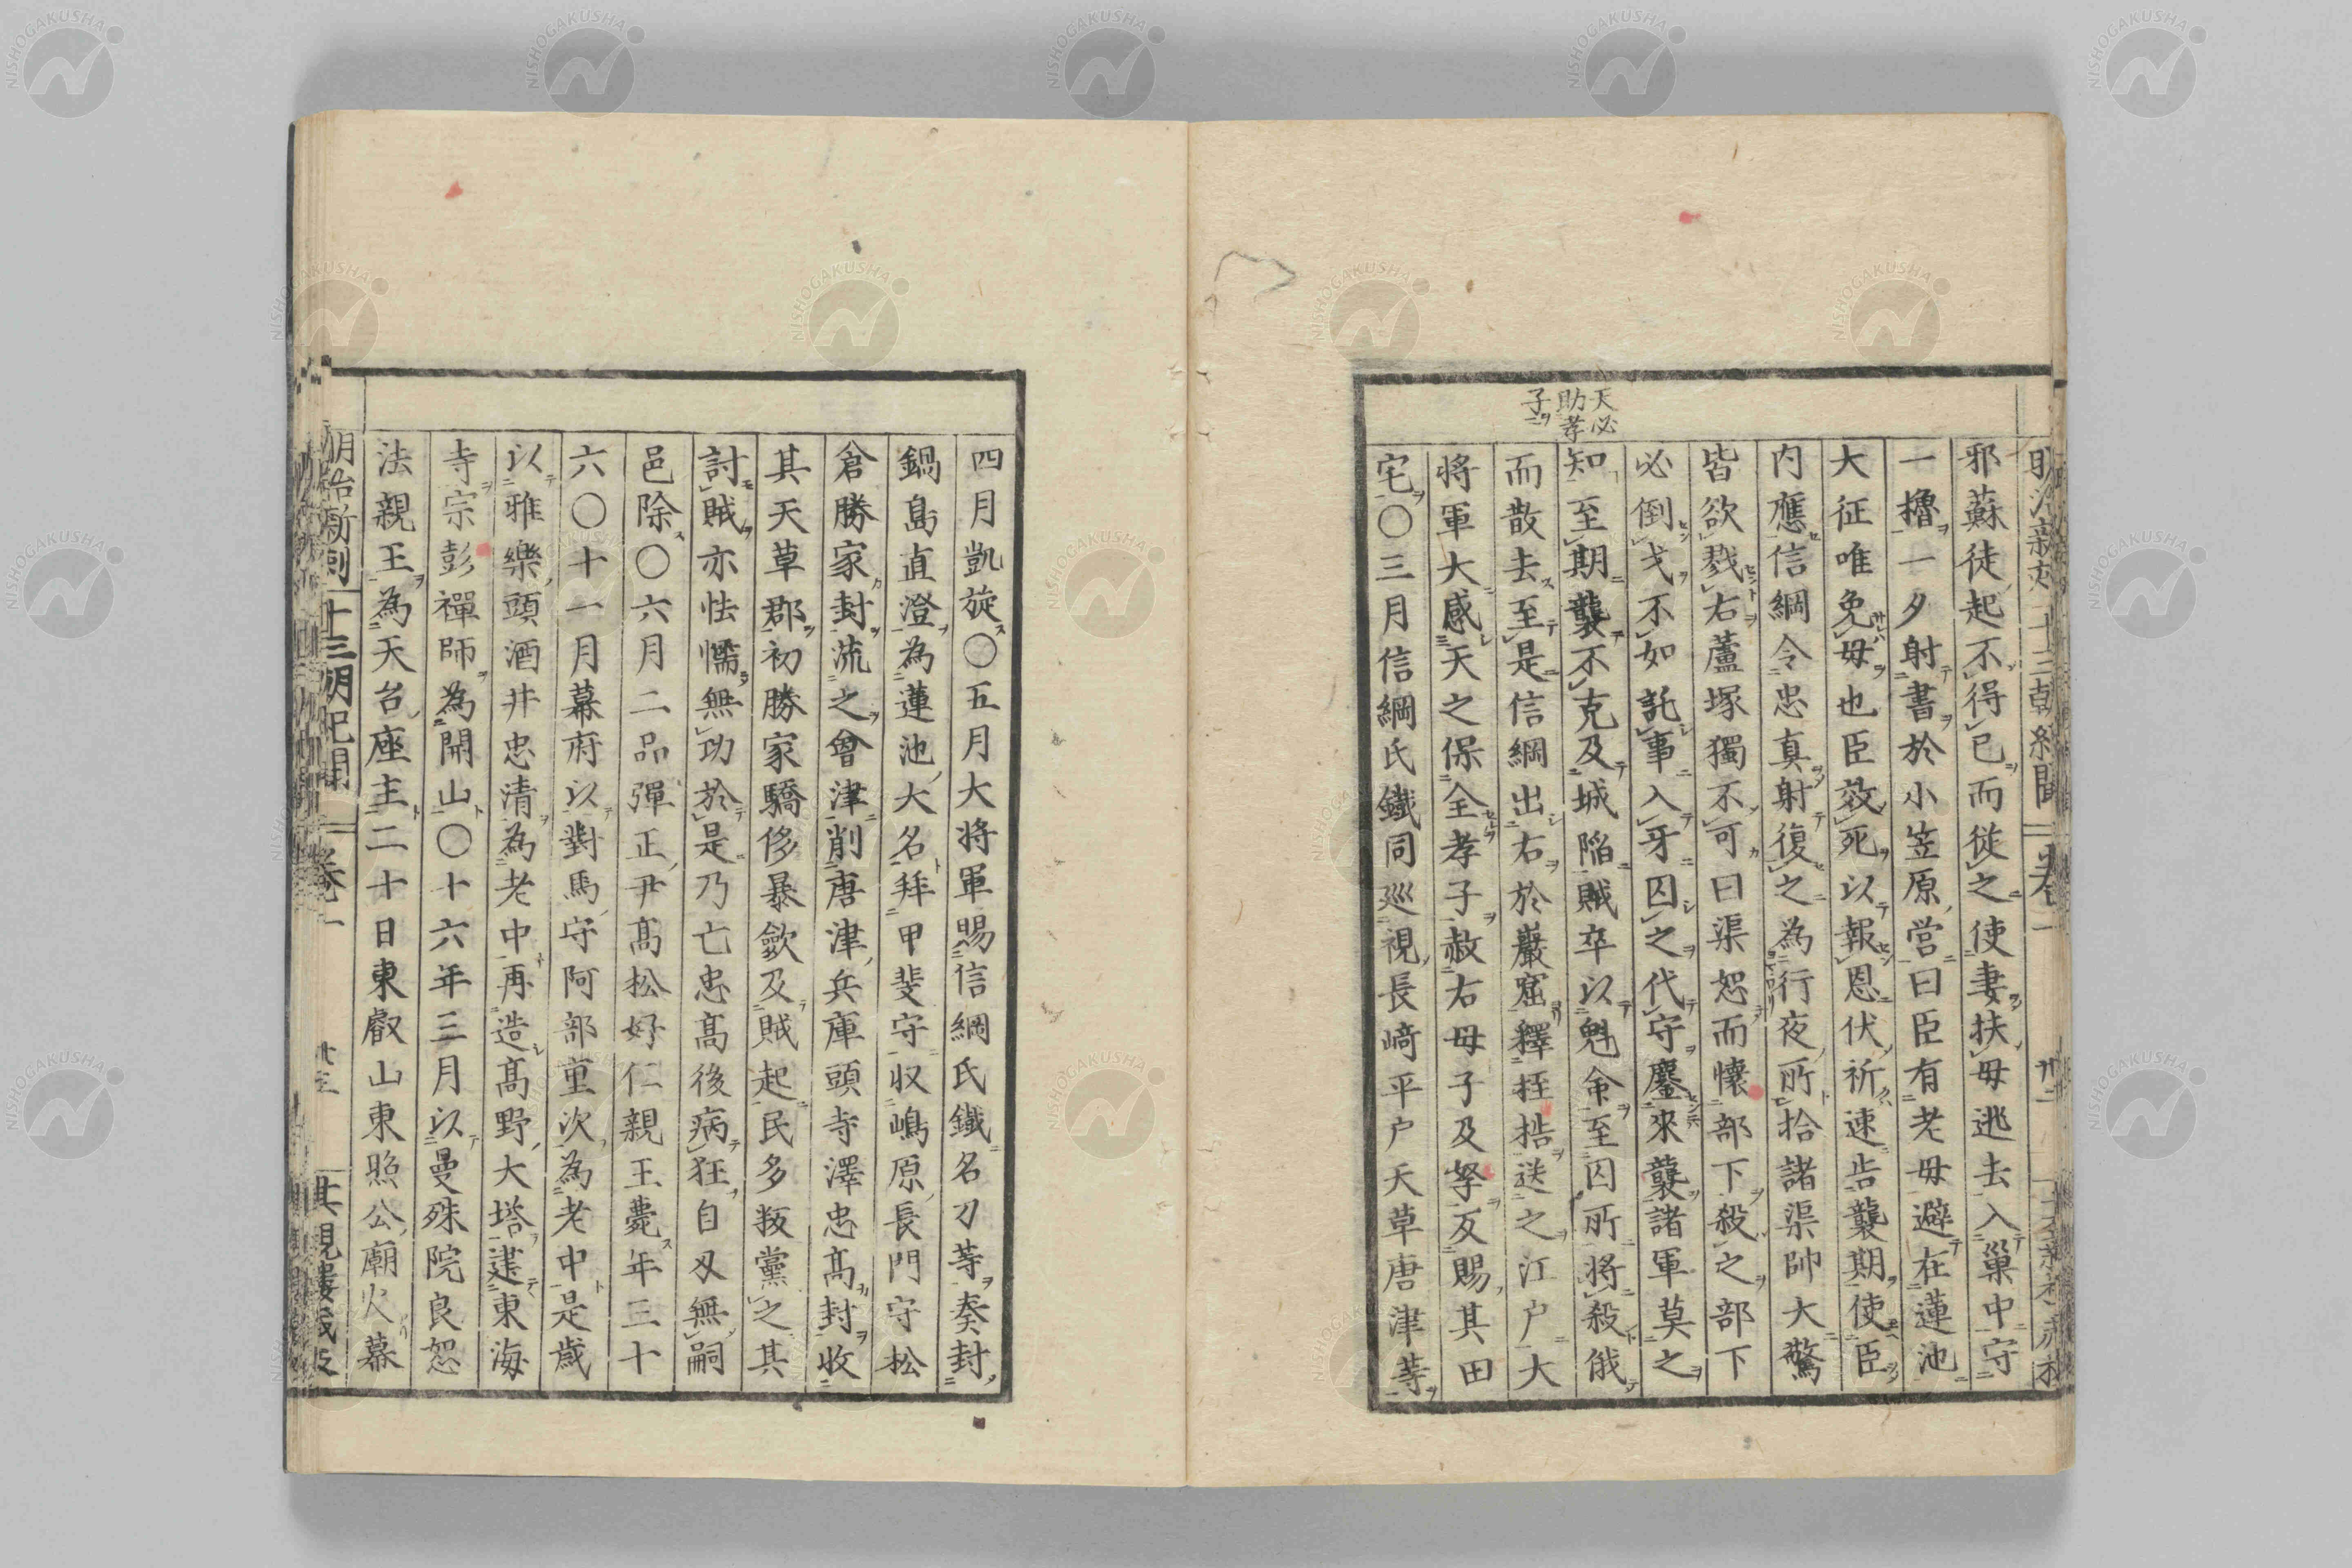 天必
助孝
子
邪蘇徒起不得已而從之使妻扶母逃去入巢中守
一櫓一夕射書於小笠原営曰臣有老母避在蓮池
大征唯免母也臣效死以報恩伏祈速告襲期使臣
内應信綱令忠真射復之為行夜所拾諸渠帥大驚
皆欲戮右蘆塚獨不可曰渠恕而懷部下殺之部下
必倒戈不如託事入牙囚之代守鏖來襲諸軍莫之
知至期襲不克及城陥賊卒以魁命至囚所将殺俄
而散去至是信綱出右於巖窟釋拄梏送之江戸大
将軍大感天之保全孝子赦右母子及孥反賜其田
宅〇三月信綱氏鐵同巡視長﨑平戸天草唐津䓁
四月凱旋〇五月大将軍賜信綱氏鐵名刀䓁奏封
鍋島直澄為蓮池大名拜甲斐守収嶋原長門守松
倉勝家封流之會津削唐津兵庫頭寺澤忠髙封收
其天草郡初勝家驕侈暴歛及賊起民多叛黨之其
討賊亦怯懦無功於是乃亡忠髙後病狂自刄無嗣
邑除〇六月二品彈正尹髙松好仁親王薨年三十
六〇十一月幕府以對馬守阿部重次為老中是歳
以雅樂頭酒井忠清為老中再造髙野大塔建東海
寺宗彭禪師為開山〇十六年三月以曼殊院良恕
法親王為天台座主二十日東叡山東照公廟火幕